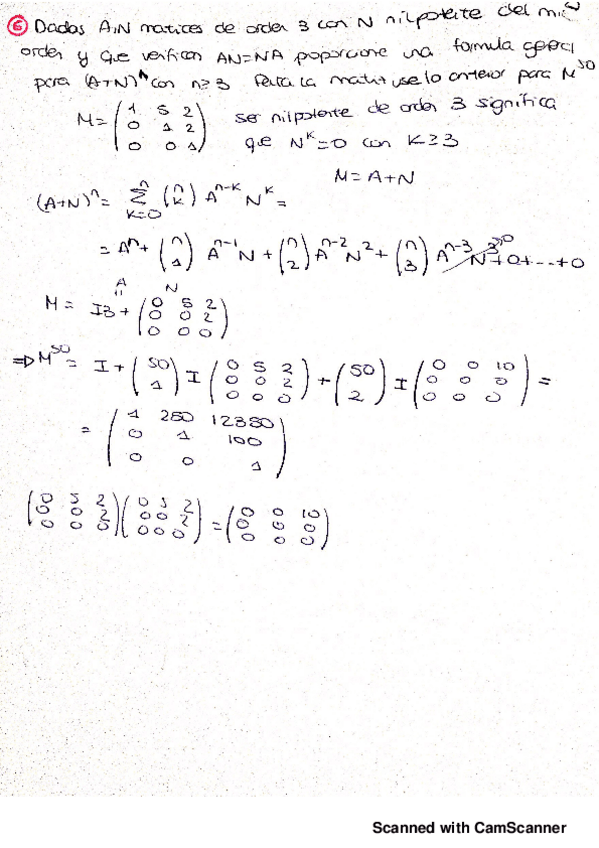 ⑥ Dados A,N matrices de orden 3 con N nilpotente del mis
orden y que verifican AN=NA proporcione una formula
para (A+N)^n con n≥3 la use lo anterior para M^50
M = (1 5 2; 0 1 2; 0 0 1) ser nilpotente de orden 3 significa
que N^k=0 con k≥3
M=A+N
(A+N)^n = Σ_{k=0}^{n} (n k) A^{n-k} N^k =
= A^n + (n 1) A^{n-1} N + (n 2) A^{n-2} N^2 + (n 3) A^{n-3} N^3 + 0 + ... + 0
A N
M = I3 + (0 5 2; 0 0 2; 0 0 0)
⇒ M^50 = I + (50 1) I (0 5 2; 0 0 2; 0 0 0) + (50 2) I (0 0 10; 0 0 0; 0 0 0) =
= (1 250 12350; 0 1 100; 0 0 1)
(0 5 2; 0 0 2; 0 0 0)(0 5 2; 0 0 2; 0 0 0) = (0 0 10; 0 0 0; 0 0 0)
Scanned with CamScanner